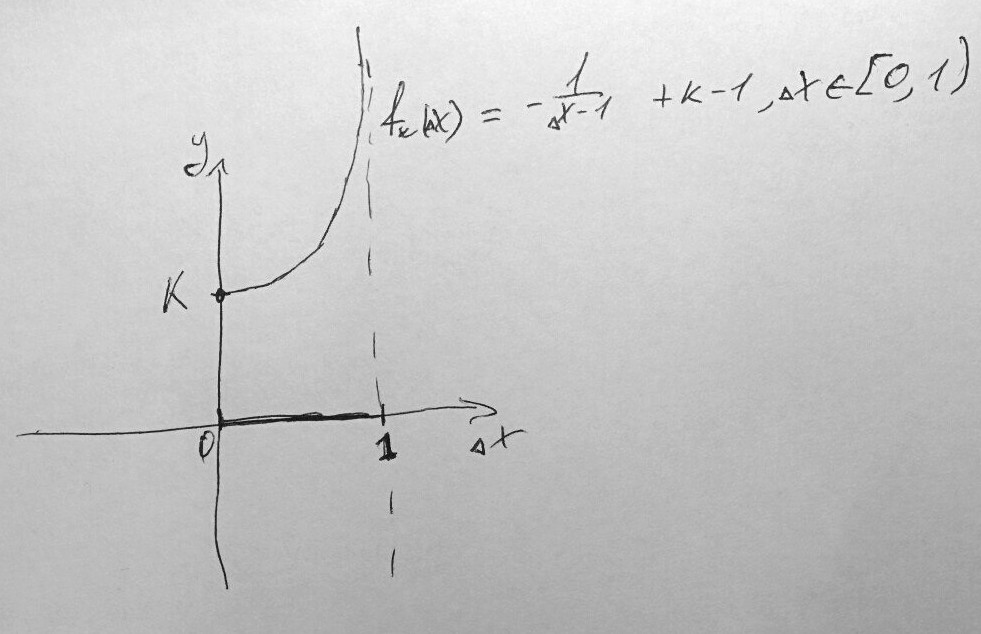 f_k(Δx) = -1/(Δx-1) + k-1, Δx∈[0,1)
y
K
0 1 Δx